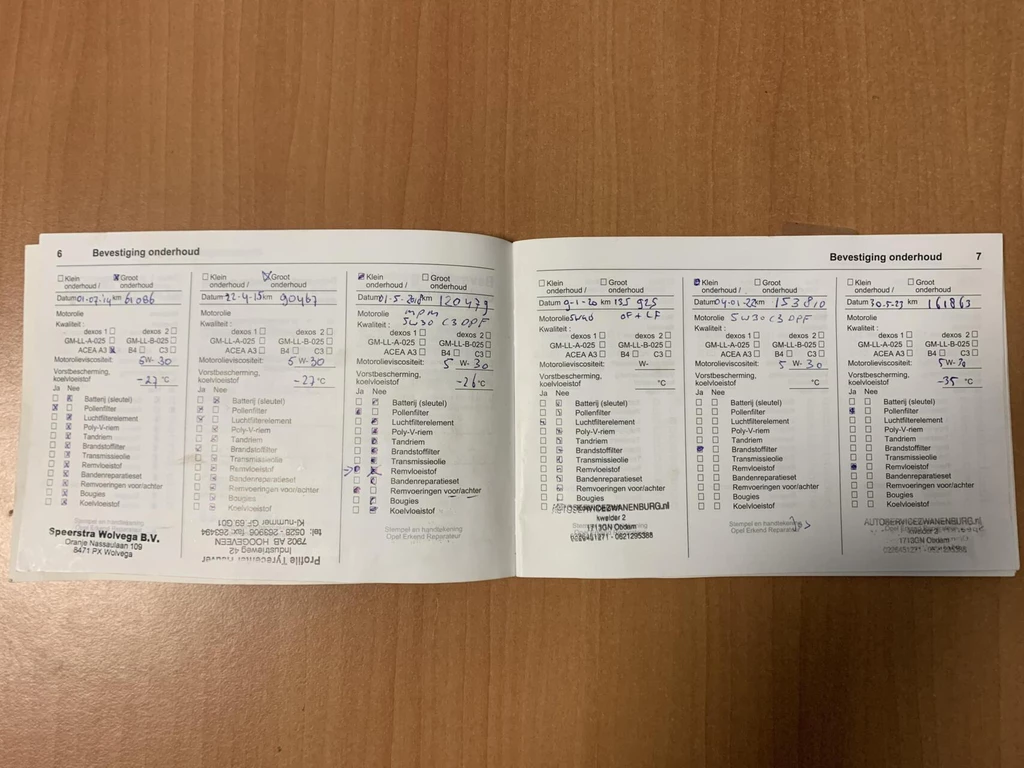 6 Bevestiging onderhoud
Klein onderhoud / Groot onderhoud
Datum 01-07-14 km 61086
Motorolie
Kwaliteit :
dexos 1 dexos 2
GM-LL-A-025 GM-LL-B-025
ACEA A3 B4 C3
Motorolieviscositeit: 5W-30
Vorstbescherming, koelvloeistof -27 °C
Ja Nee
Batterij (sleutel)
Pollenfilter
Luchtfilterelement
Poly-V-riem
Tandriem
Brandstoffilter
Transmissieolie
Remvloeistof
Bandenreparatieset
Remvoeringen voor/achter
Bougies
Koelvloeistof
Stempel en handtekening
Speerstra Wolvega B.V.
Oranje Nassaulaan 109
8471 PX Wolvega
Klein onderhoud / Groot onderhoud
Datum 22-4-15 km 90467
Motorolie
Kwaliteit :
dexos 1 dexos 2
GM-LL-A-025 GM-LL-B-025
ACEA A3 B4 C3
Motorolieviscositeit: 5W-30
Vorstbescherming, koelvloeistof -27 °C
Ja Nee
Batterij (sleutel)
Pollenfilter
Luchtfilterelement
Poly-V-riem
Tandriem
Brandstoffilter
Transmissieolie
Remvloeistof
Bandenreparatieset
Remvoeringen voor/achter
Bougies
Koelvloeistof
Profile Tyrecenter
Industrieweg 42
7902 AB HOOGEVEEN
tel: 0528 - 263906 fax
Klein onderhoud / Groot onderhoud
Datum 01-5-2018 km 120479
Motorolie mpm
5W30 C3 DPF
Kwaliteit :
dexos 1 dexos 2
GM-LL-A-025 GM-LL-B-025
ACEA A3 B4 C3
Motorolieviscositeit: 5 W-30
Vorstbescherming, koelvloeistof -26 °C
Ja Nee
Batterij (sleutel)
Pollenfilter
Luchtfilterelement
Poly-V-riem
Tandriem
Brandstoffilter
Transmissieolie
Remvloeistof
Bandenreparatieset
Remvoeringen voor/achter
Bougies
Koelvloeistof
Stempel en handtekening
Opel Erkend Reparateur
Bevestiging onderhoud 7
Klein onderhoud / Groot onderhoud
Datum 9-1-20 km 135925
Motorolie OF + LF
Kwaliteit :
dexos 1 dexos 2
GM-LL-A-025 GM-LL-B-025
ACEA A3 B4 C3
Motorolieviscositeit: W-
Vorstbescherming, koelvloeistof °C
Ja Nee
Batterij (sleutel)
Pollenfilter
Luchtfilterelement
Poly-V-riem
Tandriem
Brandstoffilter
Transmissieolie
Remvloeistof
Bandenreparatieset
Remvoeringen voor/achter
Bougies
Koelvloeistof
AUTOSERVICEZWANENBURG.nl
kwelder 2
1713GN Obdam
0226451271 - 0621295388
Klein onderhoud / Groot onderhoud
Datum 04-01-22 km 153810
Motorolie
5W30 C3 DPF
Kwaliteit :
dexos 1 dexos 2
GM-LL-A-025 GM-LL-B-025
ACEA A3 B4 C3
Motorolieviscositeit: 5 W-30
Vorstbescherming, koelvloeistof °C
Ja Nee
Batterij (sleutel)
Pollenfilter
Luchtfilterelement
Poly-V-riem
Tandriem
Brandstoffilter
Transmissieolie
Remvloeistof
Bandenreparatieset
Remvoeringen voor/achter
Bougies
Koelvloeistof
Stempel en handtekening
Opel Erkend Reparateur
Klein onderhoud / Groot onderhoud
Datum 30-5-23 km 161863
Motorolie
Kwaliteit :
dexos 1 dexos 2
GM-LL-A-025 GM-LL-B-025
ACEA A3 B4 C3
Motorolieviscositeit:
Vorstbescherming, koelvloeistof -35 °C
Ja Nee
Batterij (sleutel)
Pollenfilter
Luchtfilterelement
Poly-V-riem
Tandriem
Brandstoffilter
Transmissieolie
Remvloeistof
Bandenreparatieset
Remvoeringen voor/achter
Bougies
Koelvloeistof
AUTOSERVICEZWANENBURG.nl
1713GN Obdam